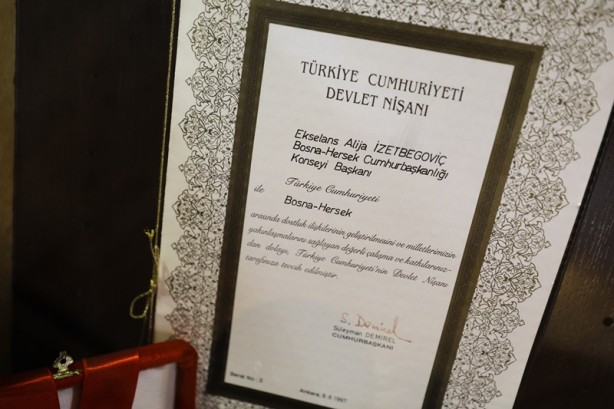 TÜRKİYE CUMHURİYETİ
DEVLET NİŞANI
Ekselans Alija İZETBEGOVİÇ
Bosna-Hersek Cumhurbaşkanlığı
Konseyi Başkanı
Türkiye Cumhuriyeti
ile Bosna-Hersek
arasında dostluk ilişkilerinin geliştirilmesini ve milletlerimizin
yakınlaşmalarını sağlayan değerli çalışma ve katkılarınız-
dan dolayı, Türkiye Cumhuriyeti'nin Devlet Nişanı
tarafınıza tevcih edilmiştir.
S. Demirel
Süleyman DEMİREL
CUMHURBAŞKANI
Seri No :
Ankara, 1997